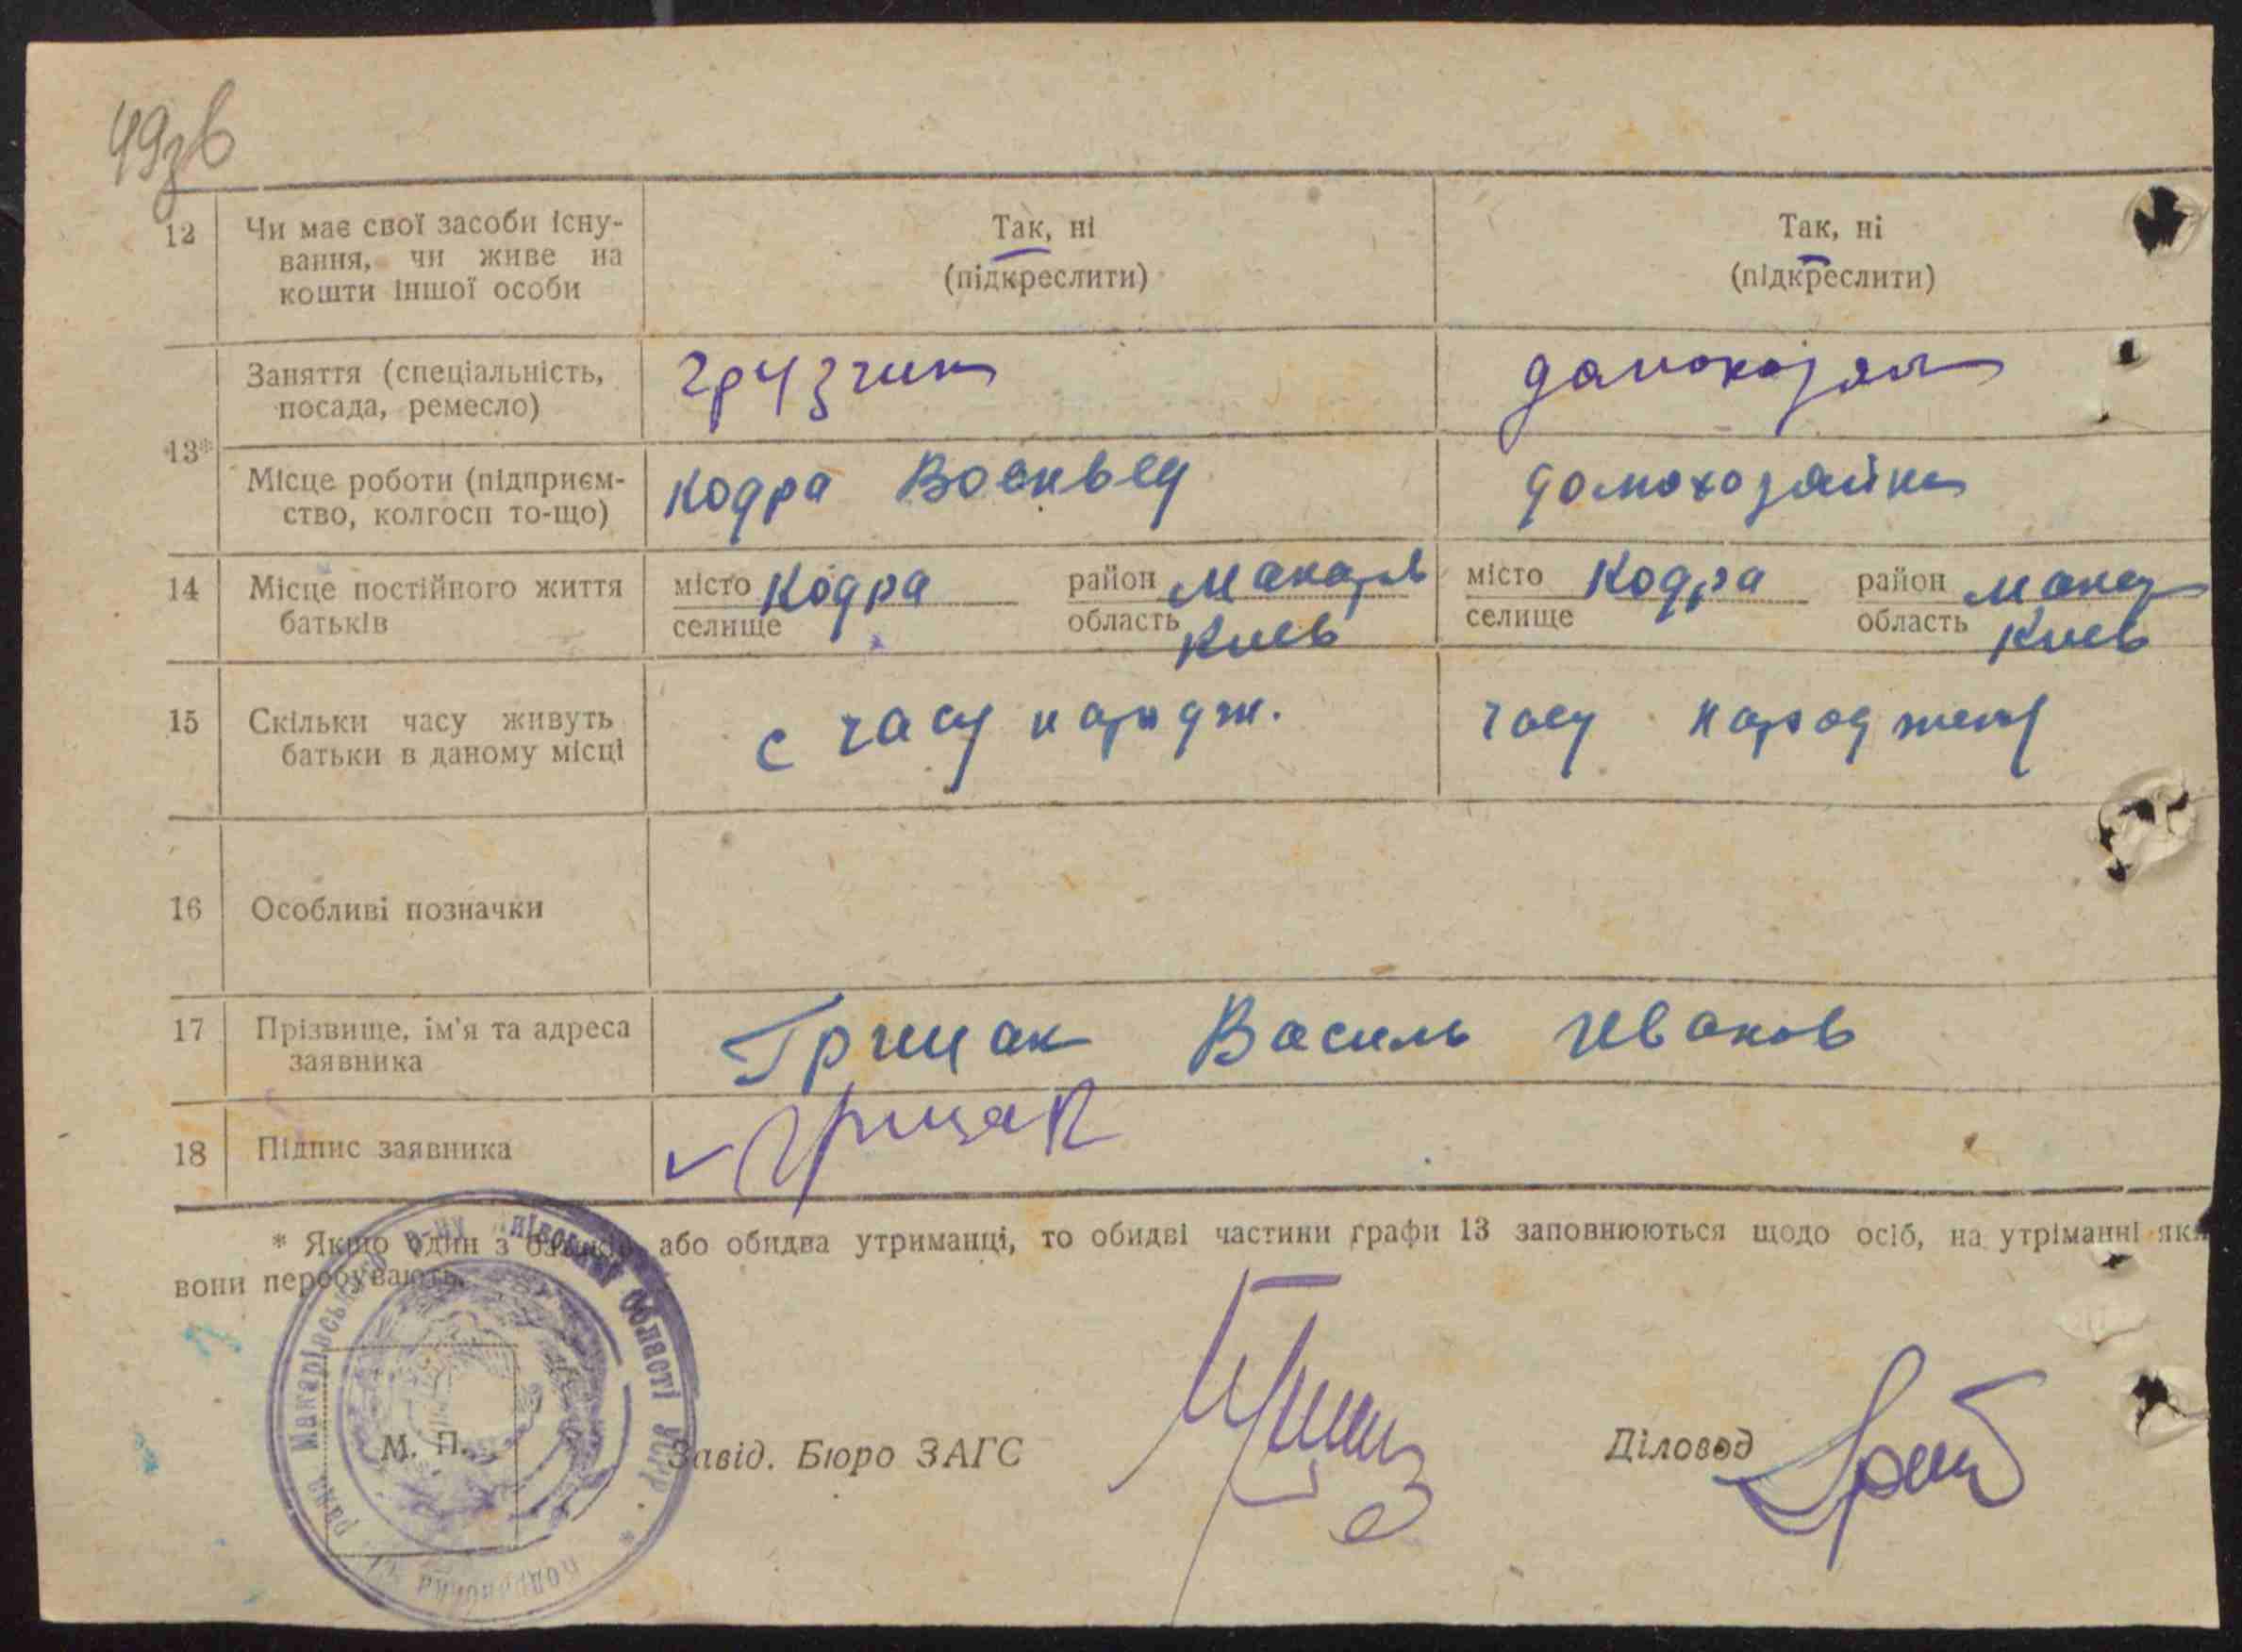 49зв
12 Чи має свої засоби існу- Так, ні Так, ні
вання, чи живе на (підкреслити) (підкреслити)
кошти іншої особи
Заняття (спеціальність, грузчик домохозяй
посада, ремесло)
13*
Місце роботи (підприєм- Кодра Военвед домохозяйка
ство, колгосп то-що)
14 Місце постійного життя місто Кодра район Макарів місто Кодра район Макар
батьків селище область Киев селище область Киев
15 Скільки часу живуть с часу нарадж. часу народжен
батьки в даному місці
16 Особливі позначки
17 Прізвище, ім'я та адреса Грицак Василь Иванов
заявника
18 Підпис заявника Грицак
* Якщо один з батьків або обидва утриманці, то обидві частини графи 13 заповнюються щодо осіб, на утріманні яки
вони перебувають.
рада Макарівського р-ну Київської області УСРР
М. П. Завід. Бюро ЗАГС Діловод